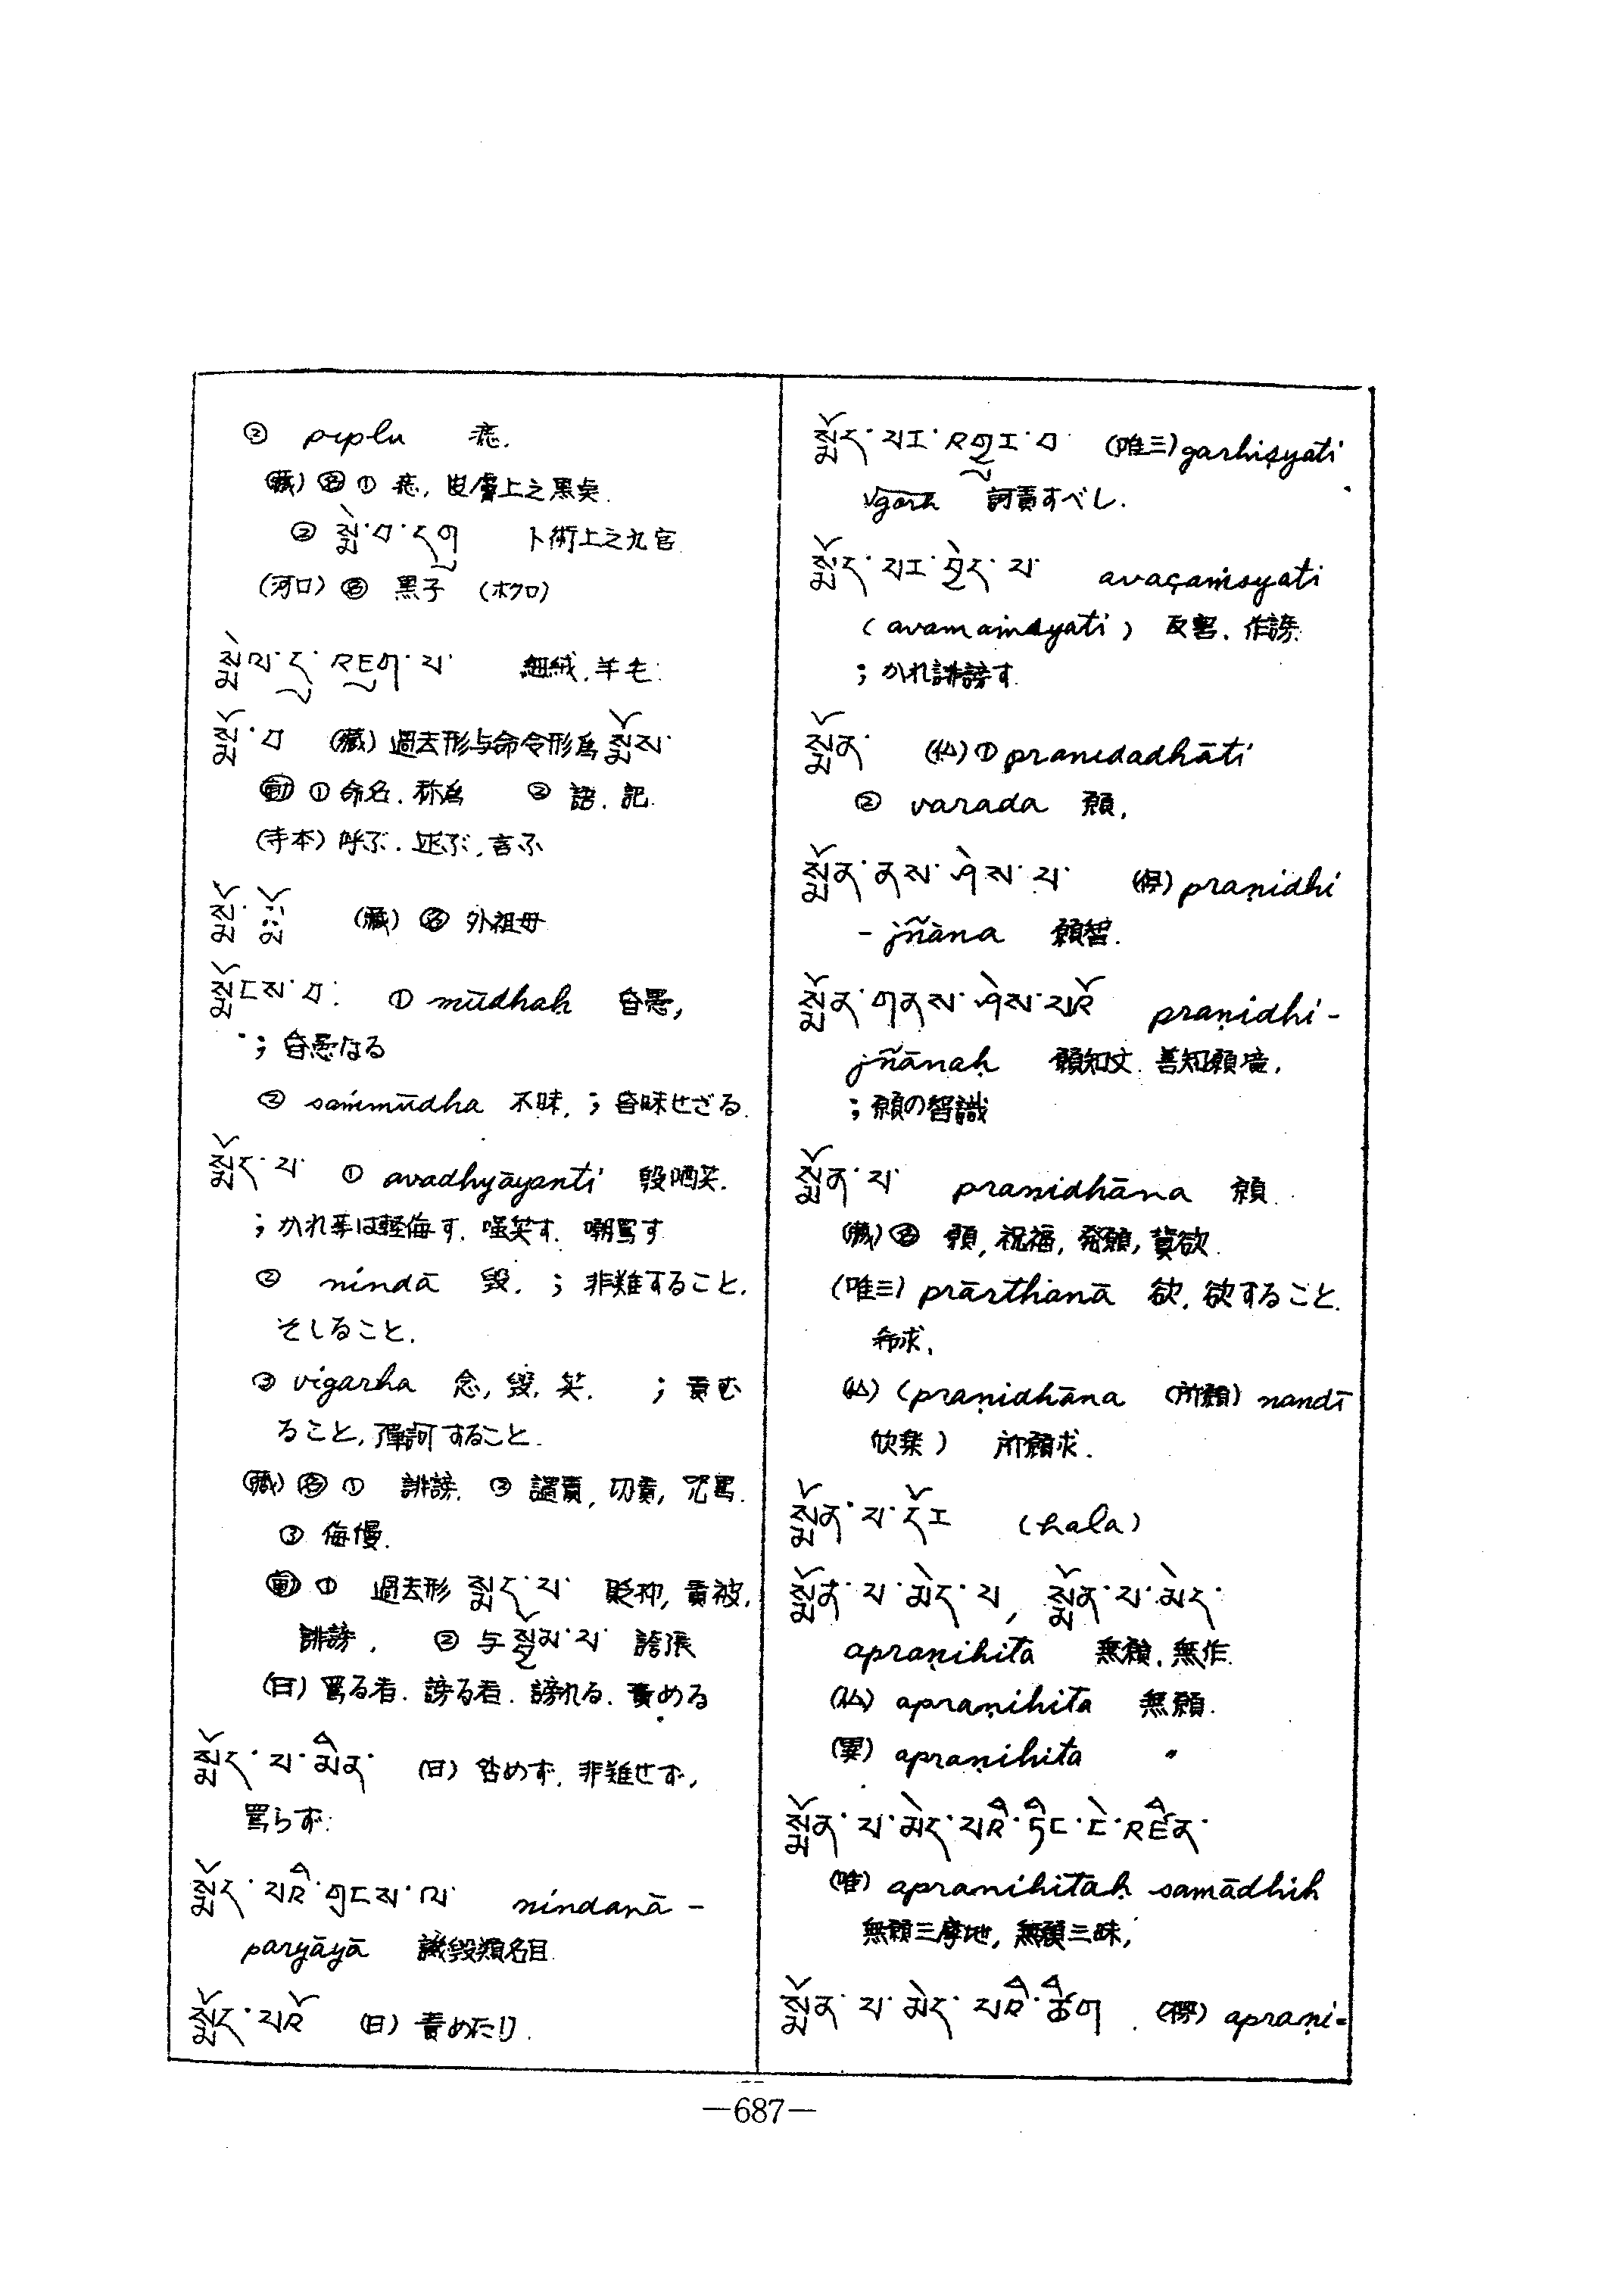 ② piplu 痣.
(藏) 名 ① 痣, 皮膚上之黑点.
② སྨེ་བ་དགུ 卜術上之九宮
(河口) 名 黒子 (ホクロ)
སྨེལ་དུ་རེག་པ་ 細絨, 羊毛.
སྨོ་བ (藏) 過去形与命令形爲 སྨོས་
動 ① 命名. 称爲 ② 語. 記.
(寺本) 呼ぶ. 述ぶ, 言ふ
སྨོ་སྨོ (藏) 名 外祖母
སྨོངས་པ་ ① mūdhaḥ 昏愚,
; 昏愚なる
② saṁmūdha 不昧, ; 昏昧せざる.
སྨོད་པ་ ① avadhyāyanti 毀哂笑.
; かれ等は軽侮す. 嗤笑す. 嘲罵す
② nindā 毀. ; 非難すること.
そしること.
③ vigarha 念, 毀, 笑. ; 責む
ること, 弾訶すること.
(藏) 名 ① 誹謗. ② 譴責, 切責, 咒罵.
③ 侮慢.
動 ① 過去形 སྨད་པ་ 貶抑, 責被,
誹謗. ② 与 སྨྲ པ་ 誇張
(日) 罵る者. 謗る者. 謗れる. 責める
སྨོད་པ་མིན་ (日) 咎めず. 非難せず,
罵らず.
སྨོད་པའི་གྲངས་ལ་ nindanā -
paryāyā 譏毀類名目
སྨོད་པའོ (日) 責めたり.
སྨོད་པར་འགྱུར་བ (唯三) garhiṣyati
√garh 訶責すべし.
སྨོད་པར་བྱེད་པ་ avaçaṁsyati
(avamaṁsyati) 反害. 作謗.
; かれ誹謗す.
སྨོན་ (仏) ① pranidadhāti
② varada 願,
སྨོན་ནས་ཤེས་པ་ praṇidhi
- jñāna 願智.
སྨོན་གནས་ཤེས་པའོ praṇidhi -
jñānaḥ 願知文. 善知願境,
; 願の智識
སྨོན་པ praṇidhāna 願.
(藏) 名 願, 祝福, 発願, 冀欲.
(唯三) prārthanā 欲, 欲すること.
希求,
(仏) (praṇidhāna (所願) nandī
欣楽) 所願求.
སྨོན་པ་དོར (hala)
སྨོན་པ་མེད་པ, སྨོན་པ་མེད་
apraṇihita 無願, 無作.
(仏) apraṇihita 無願.
(翼) apraṇihita 〃
སྨོན་པ་མེད་པའི་ཏིང་ངེ་འཛིན་
(唯) apranihitaḥ samādhiḥ
無願三摩地, 無願三昧,
སྨོན་པ་མེད་པའི་ཚིག apraṇi=
—687—